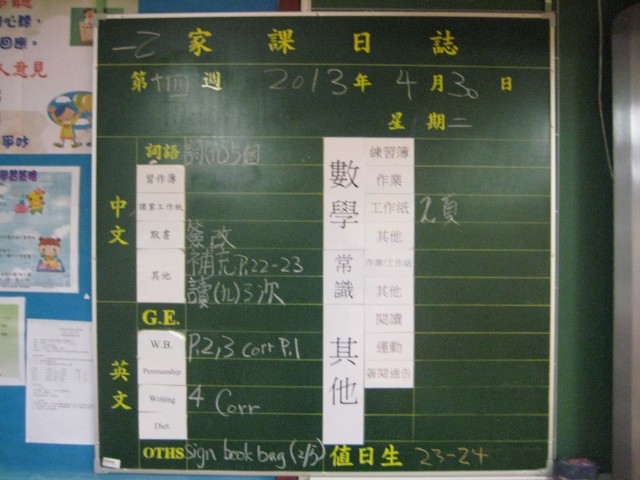 一乙 家課日誌
第十四週 2013年4月30日
星期二
中文
詞語 詞(九)5個
習作簿
課業工作紙
默書 簽改
其他 補充P.22-23
讀(九)3次
英文
G.E.
W.B. P.2,3 corr P.1
Penmanship
Writing 4 Corr
Dict.
OTHS sign book bag (2/5)
數學
練習簿
作業
工作紙 2頁
其他
常識
作業/工作紙
其他
其他
閱讀
運動
簽閱通告
值日生 23-24
心聽
回應。
人意見